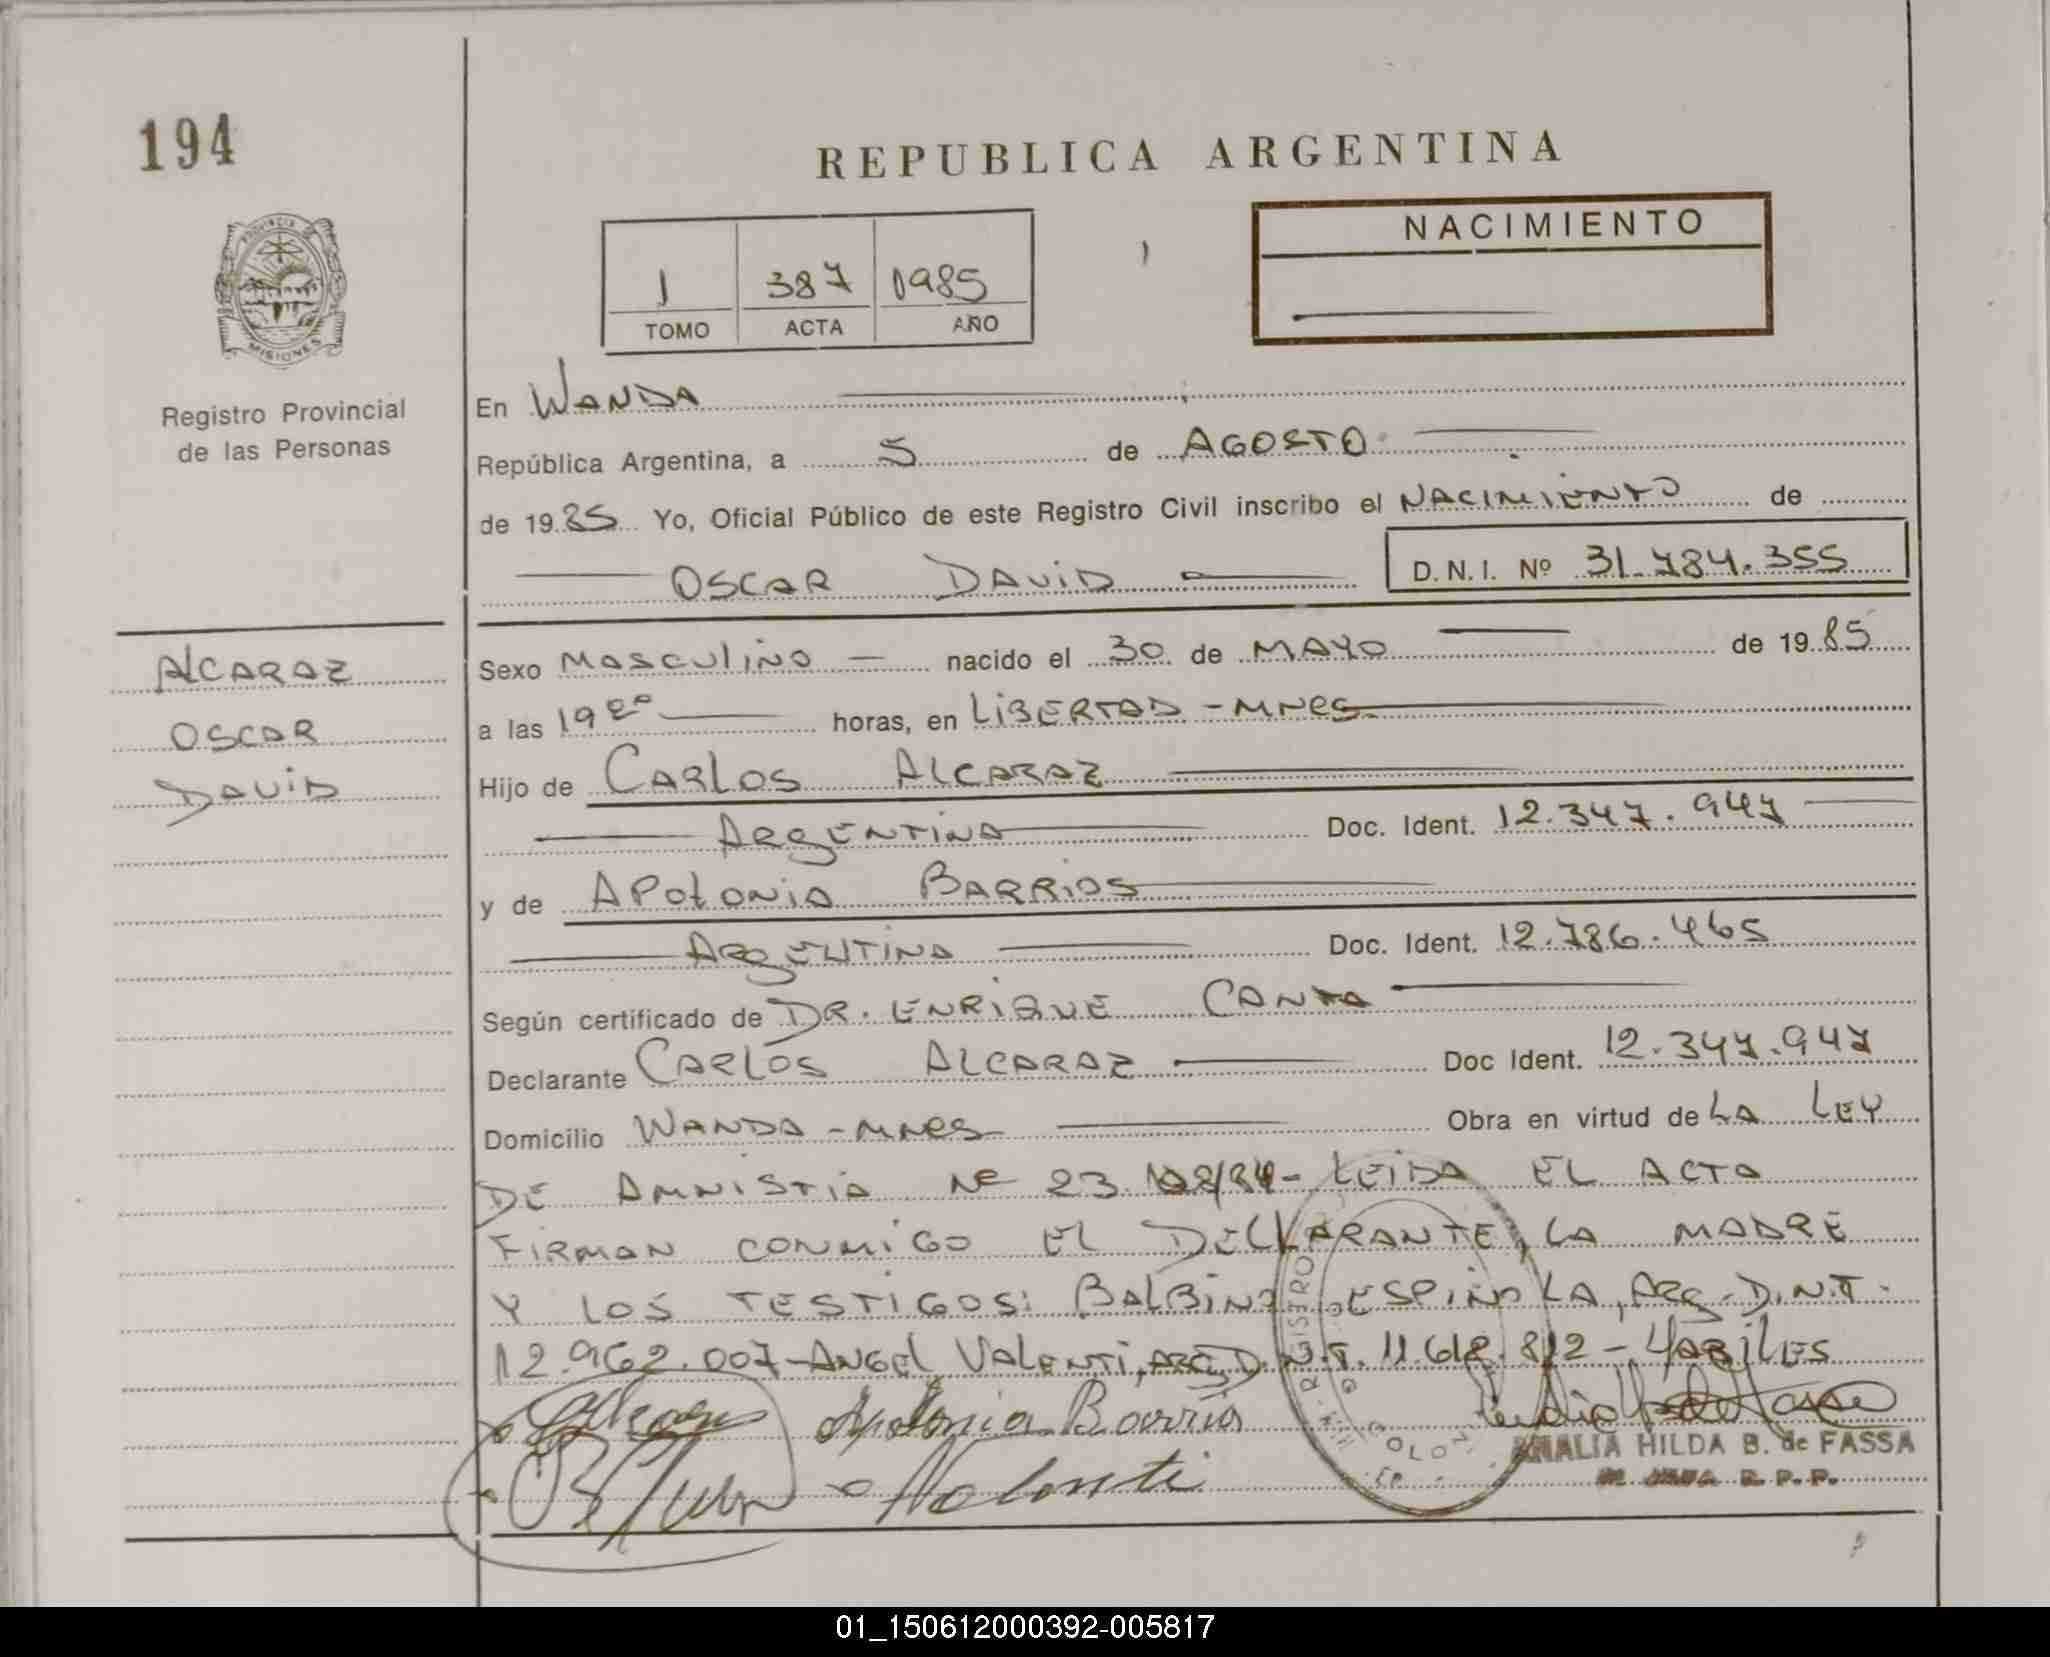 194
REPUBLICA ARGENTINA
PROVINCIA DE
MISIONES
Registro Provincial
de las Personas
1 387 1985
TOMO ACTA AÑO
NACIMIENTO
En WANDA
República Argentina, a 5 de AGOSTO
de 1985 Yo, Oficial Público de este Registro Civil inscribo el NACIMIENTO de
OSCAR DAVID D.N.I. Nº 31.784.355
ALCARAZ
OSCAR
DAVID
Sexo MASCULINO nacido el 30 de MAYO de 1985
a las 19 horas, en LIBERTAD - MNES.
Hijo de CARLOS ALCARAZ
ARGENTINA Doc. Ident. 12.347.947
y de APOLONIA BARRIOS
ARGENTINA Doc. Ident. 12.786.465
Según certificado de DR. ENRIQUE
Declarante CARLOS ALCARAZ Doc Ident. 12.347.947
Domicilio WANDA - MNES Obra en virtud de LA LEY
DE AMNISTIA Nº 23. LEIDA EL ACTA
FIRMAN CONMIGO EL DECLARANTE, LA MADRE
Y LOS TESTIGOS: BALBINO ESPINOLA, ARG. D.N.I.
12.962.007 - ANGEL VALENTI, ARG D.N.I. 11.618.812 - 4 ABILES
Apolonia Barrios
Valenti
REGISTRO
AMALIA HILDA B. de FASSA
R. P. P.
01_150612000392-005817